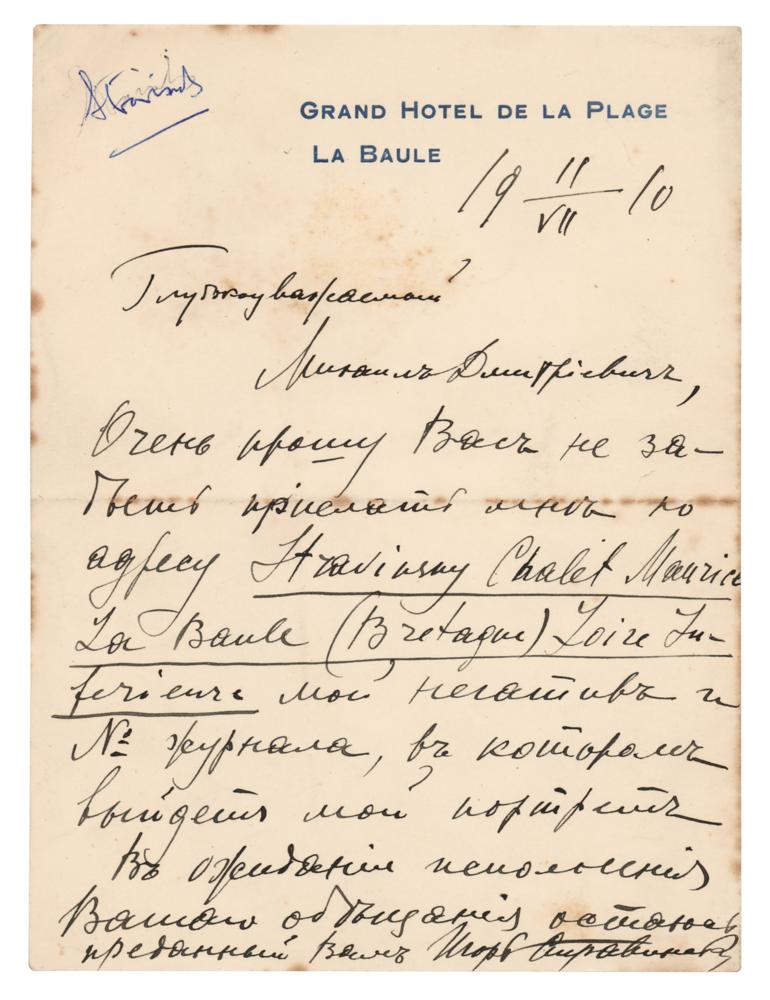 Stravinsky
GRAND HOTEL DE LA PLAGE
LA BAULE
19 11/VII 10
Глубокоуважаемый
Михаилъ Дмитріевичъ,
Очень прошу Васъ не за-
быть прислать мнѣ по
адресу Stravinsky Chalet Maurice
La Baule (Bretagne) Loire In-
ferieure мой негативъ и
№ журнала, въ которомъ
выйдетъ мой портретъ
Въ ожиданіи исполненія
Вашего обѣщанія остаюсь
преданный Вамъ Игорь Стравинскій